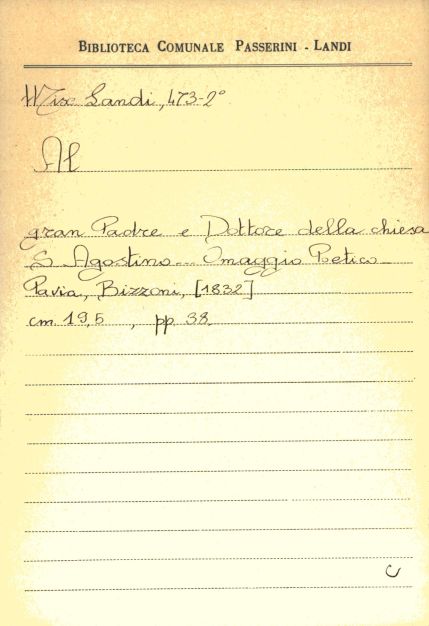 BIBLIOTECA COMUNALE PASSERINI - LANDI
Misc Landi, 473-2°
Al
gran Padre e Dottore della chiesa
S Agostino... Omaggio Poetico_
Pavia, Bizzoni, [1832]
cm 19,5 , pp 38.
C